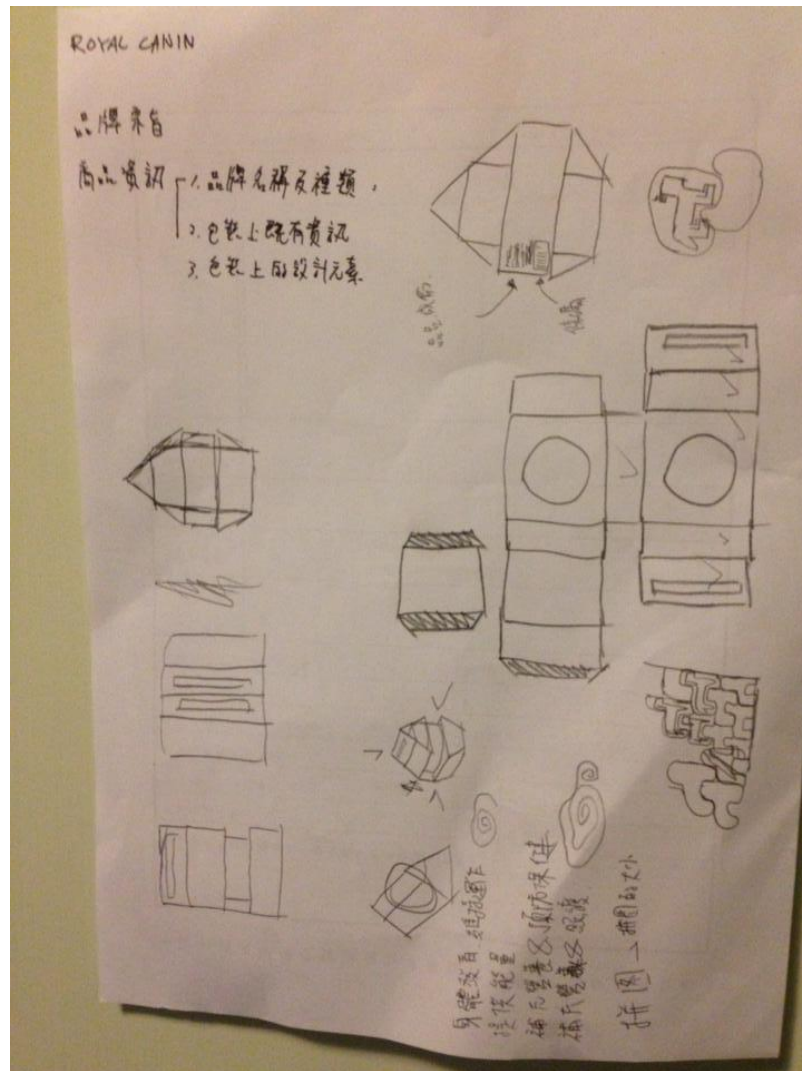 ROYAL CANIN
品牌來自
商品資訊 1. 品牌名稱及種類.
2. 包裝上既有資訊
3. 包裝上的設計元素
品名
條碼
身體發育
提供能量
補充營養&預防保健
補充營養&照護
拼图 → 拼图的大小